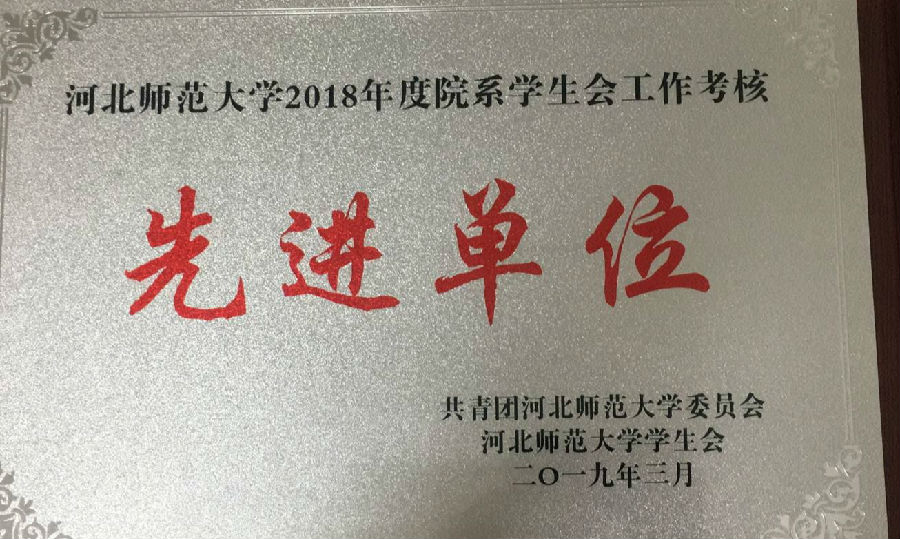 河北师范大学2018年度院系学生会工作考核
先进单位
共青团河北师范大学委员会
河北师范大学学生会
二〇一九年三月